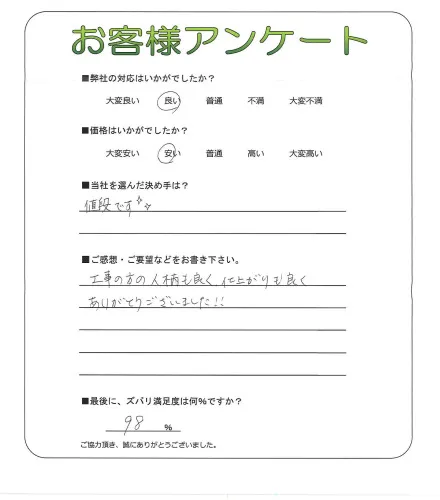 お客様アンケート
■弊社の対応はいかがでしたか？
大変良い 良い 普通 不満 大変不満
■価格はいかがでしたか？
大変安い 安い 普通 高い 大変高い
■当社を選んだ決め手は？
値段です
■ご感想・ご要望などをお書き下さい。
工事の方の人柄も良く、仕上がりも良く
ありがとうございました!!
■最後に、ズバリ満足度は何%ですか？
98 %
ご協力頂き、誠にありがとうございました。